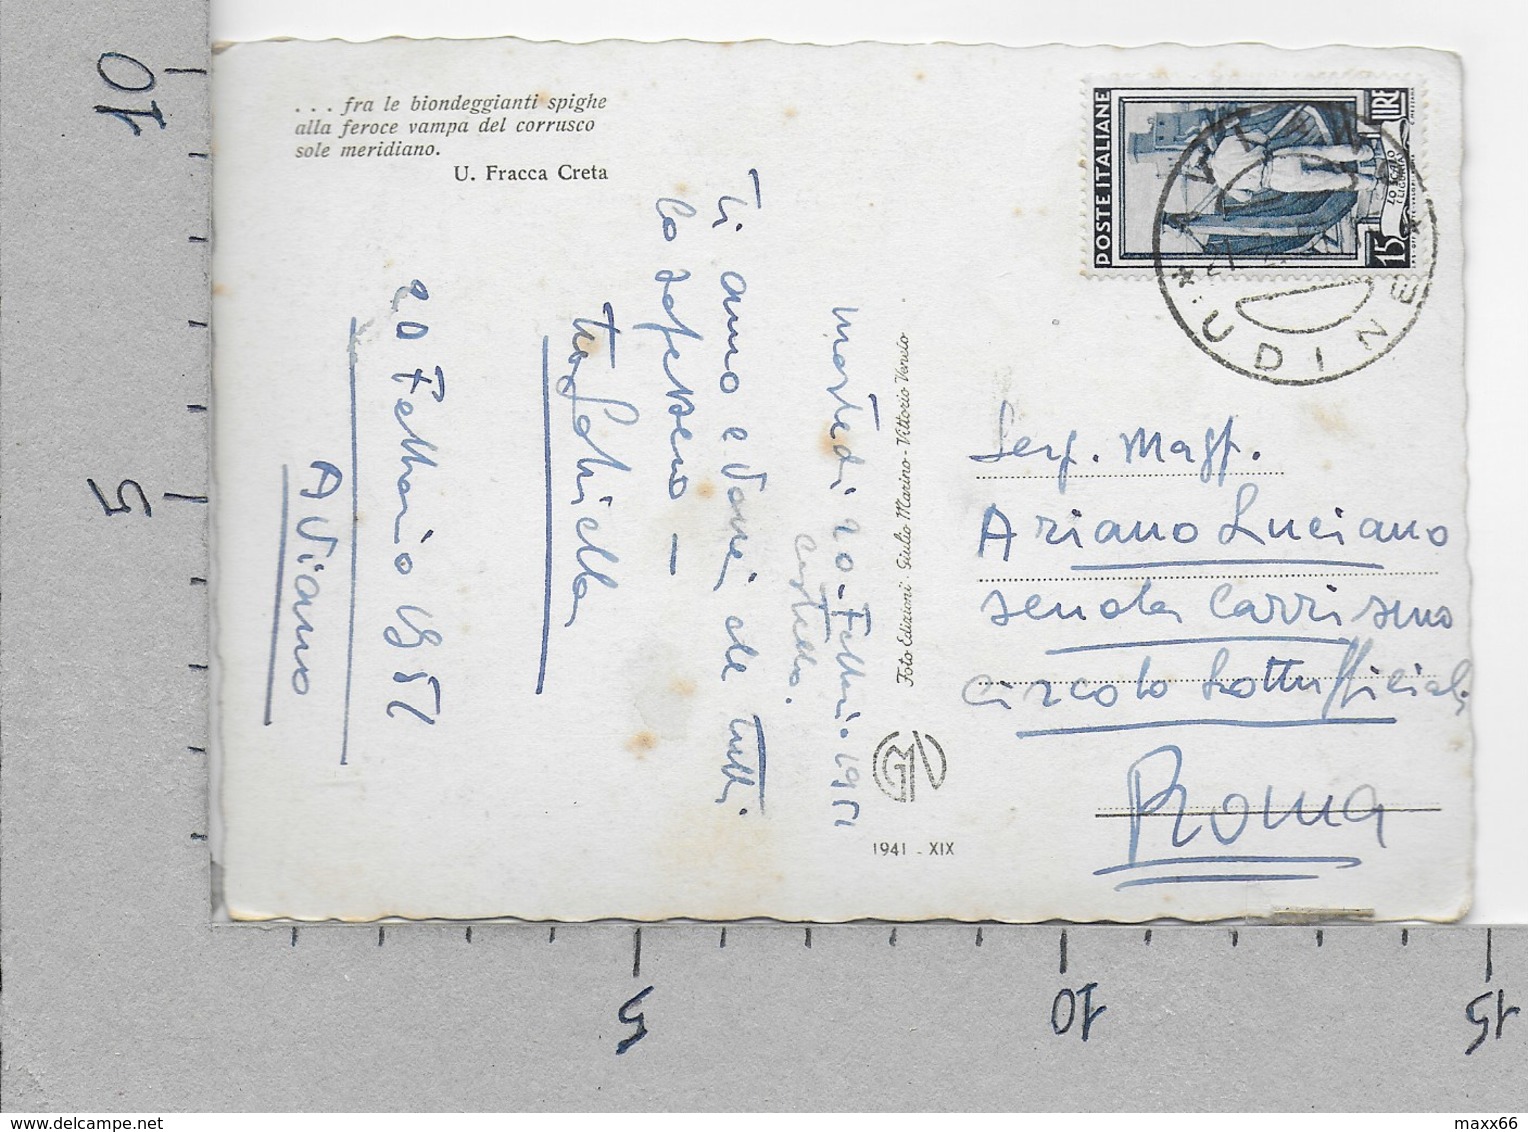 . . . fra le biondeggianti spighe
alla feroce vampa del corrusco
sole meridiano.
U. Fracca Creta
Ti amo e vorrei che tutti
lo sapessero —
tua Gabriella
20 Febbraio 1951
Aviano
martedì 20 - Febbraio 1951
Foto Edizioni: Giulio Marino - Vittorio Veneto
1941 - XIX
POSTE ITALIANE
LIRE
15
LO SCALO
LIGURIA
AVIANO
* UDINE *
Serg. Magg.
Ariano Luciano
scuola Carrismo
Circolo Sottufficiali
Roma
10
5
5
10
15
maxx66